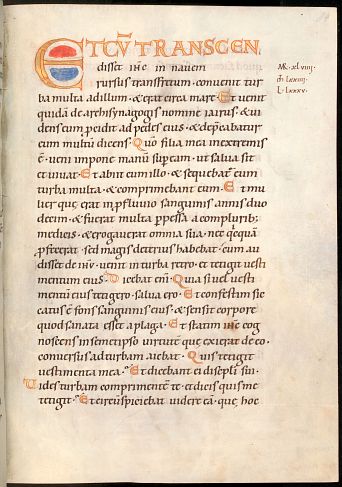 ET CŪ TRANSCEN
disset ihc̄ in navem
rursus transfretum. convenit tur
ba multa adillum. & erat circa mare. Et venit
quidā de archisynagogis nomine jairus. & vi
dens eum procidit ad pedes eius. & deprecabatur
eum multū dicens. Quō filia mea inextremis
ē. veni impone manū sup eam. ut salva sit
et vivat. Et abiit cum illo. & sequebat eum
turba multa. & comprimebant eum. Et mu
lier que erat in pfluvio sanguinis annis duo
decim. & fuerat multa ppessa a complurib;
medicis. & erogaverat omnia sua. nec qcquā
pfecerat. sed magis deterius habebat. cum au
disset de ihu. venit in turba retro. et tetigit vesti
mentum eius. Dicebat enī. Quia si vel vesti
mentū eius tetigero. salva ero. Et confestim sic
catus ē fons sanguinis eius. & sensit corpore
quod sanata esset a plaga. Et statim ihc cog
noscens insemetipso virtutē que exierat de eo.
conversus ad turbam aiebat. Quis tetigit
vestimenta mea. Et dicebant ei discipli sui.
Vides turbam comprimentē te. et dicis quis me
tetigit. Et circūspiciebat videre eā. que hoc